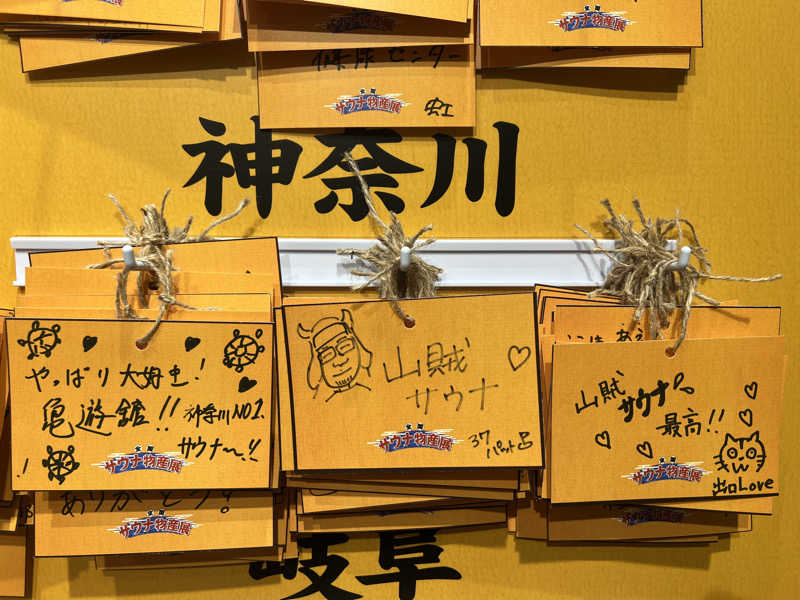 サウナ物産展
サウナ物産展
センター
サウナ物産展
虹
神奈川
やっぱり 大好き!
亀遊舘!! 神奈川NO1.
サウナ〜!!
サウナ物産展
山賊
サウナ
サウナ物産展
山賊
サウナ
最高!!
サウナ物産展
出口Love
ありがとう!
サウナ物産展
サウナ物産展
岐阜